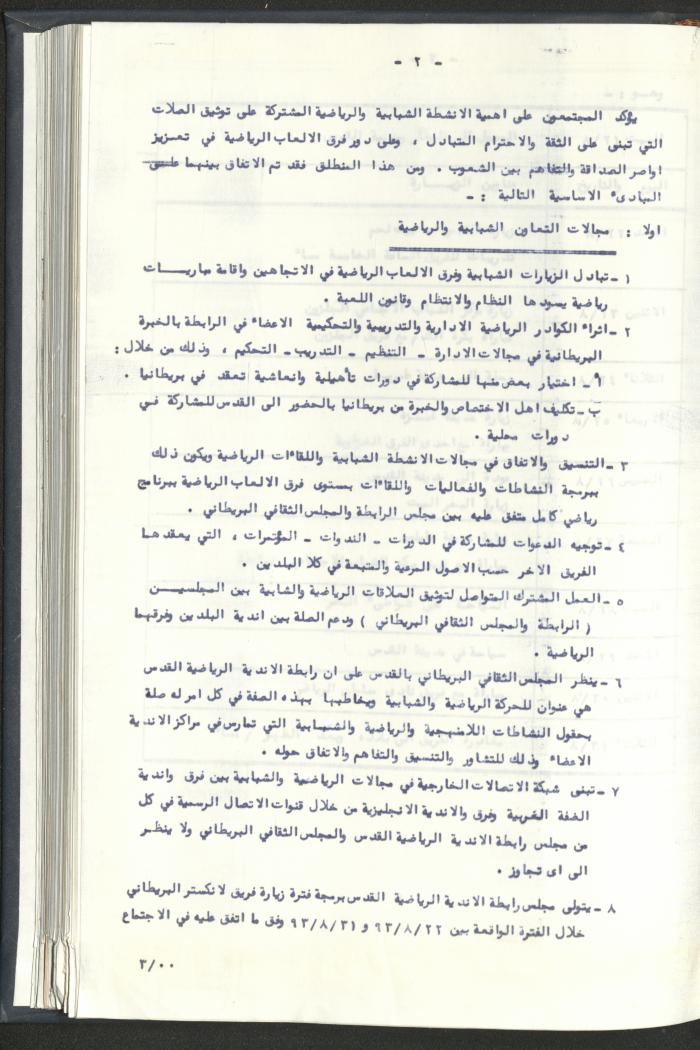 - ٢ -
يؤكد المجتمعون على اهمية الانشطة الشبابية والرياضية المشتركة على توثيق الصلات
التي تبنى على الثقة والاحترام المتبادل ، وعلى دور فرق الالعاب الرياضية في تعـزيز
اواصر الصداقة والتفاهم بين الشعوب . ومن هذا المنطلق فقد تم الاتفاق بينهما علـى
المبادىء الاساسية التالية : -
اولا : مجالات التعاون الشبابية والرياضية
١ - تبادل الزيارات الشبابية وفرق الالعاب الرياضية في الاتجاهين واقامة مباريـــات
رياضية يسودها النظام والانتظام وقانون اللعبة .
٢ - اثراء الكوادر الرياضية الادارية والتدريبية والتحكيمية الاعضاء في الرابطة بالخبرة
البريطانية في مجالات الادارة - التنظيم - التدريب - التحكيم ، وذلك من خلال :
أ - اختيار بعض منها للمشاركة في دورات تأهيلية وانعاشية تعقد في بريطانيا .
ب - تكليف اهل الاختصاص والخبرة من بريطانيا بالحضور الى القدس للمشاركة فـي
دورات محلية .
٣ - التنسيق والاتفاق في مجالات الانشطة الشبابية واللقاءات الرياضية ويكون ذلك
ببرمجة النشاطات والفعاليات واللقاءات بمستوى فرق الالعاب الرياضية ببرنامج
رياضي كامل متفق عليه بين مجلس الرابطة والمجلس الثقافي البريطاني .
٤ - توجيه الدعوات للمشاركة في الدورات - الندوات - المؤتمرات ، التي يعقدهـا
الفريق الاخر حسب الاصول المرعية والمتبعة في كلا البلدين .
٥ - العمل المشترك المتواصل لتوثيق العلاقات الرياضية والشبابية بين المجلسيـــن
( الرابطة والمجلس الثقافي البريطاني ) ودعم الصلة بين اندية البلدين وفرقهـا
الرياضية .
٦ - ينظر المجلس الثقافي البريطاني بالقدس على ان رابطة الاندية الرياضية القدس
هي عنوان للحركة الرياضية والشبابية ويخاطبها بهذه الصفة في كل امر له صلة
بحقول النشاطات اللامنهجية والرياضية والشبـابية التي تمارس في مراكز الاندية
الاعضاء وذلك للتشاور والتنسيق والتفاهم والاتفاق حوله .
٧ - تبنى شبكة الاتصالات الخارجية في مجالات الرياضية والشبابية بين فرق واندية
الضفة الغربية وفرق والاندية الانجليزية من خلال قنوات الاتصال الرسمية في كل
من مجلس رابطة الاندية الرياضية القدس والمجلس الثقافي البريطاني ولا ينظـر
الى اى تجاوز .
٨ - يتولى مجلس رابطة الاندية الرياضية القدس برمجة فترة زيارة فريق لانكستر البريطاني
خلال الفترة الواقعة بين ٩٣/٨/٢٢ و ٩٣/٨/٣١ وفق ما اتفق عليه في الاجتماع
٣/٠٠